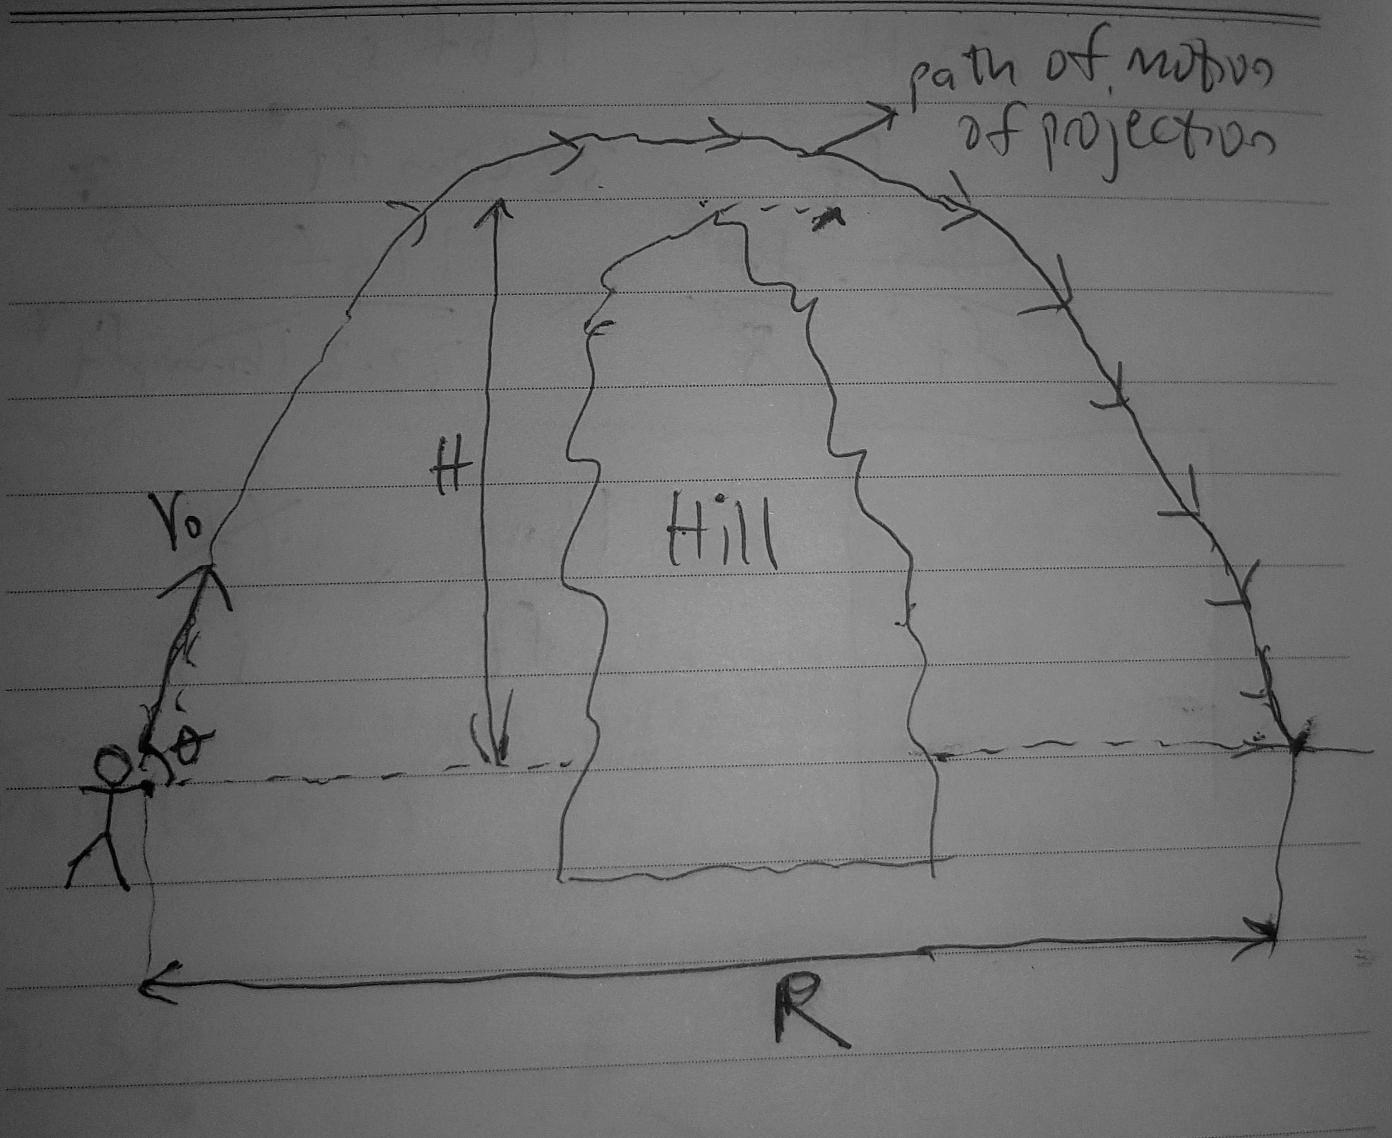 path of motion
of projection
H
V₀
Hill
θ
R